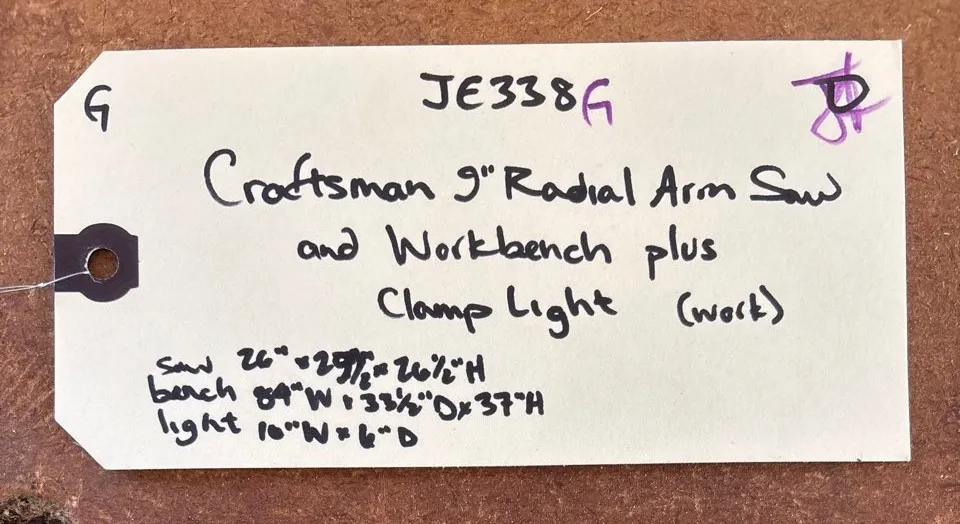 G JE338G
Craftsman 9" Radial Arm Saw
and Workbench plus
Clamp Light (work)
saw 26" x x 26½"H
bench 84"W x 33½"D x 37"H
light 10"W x 6"D